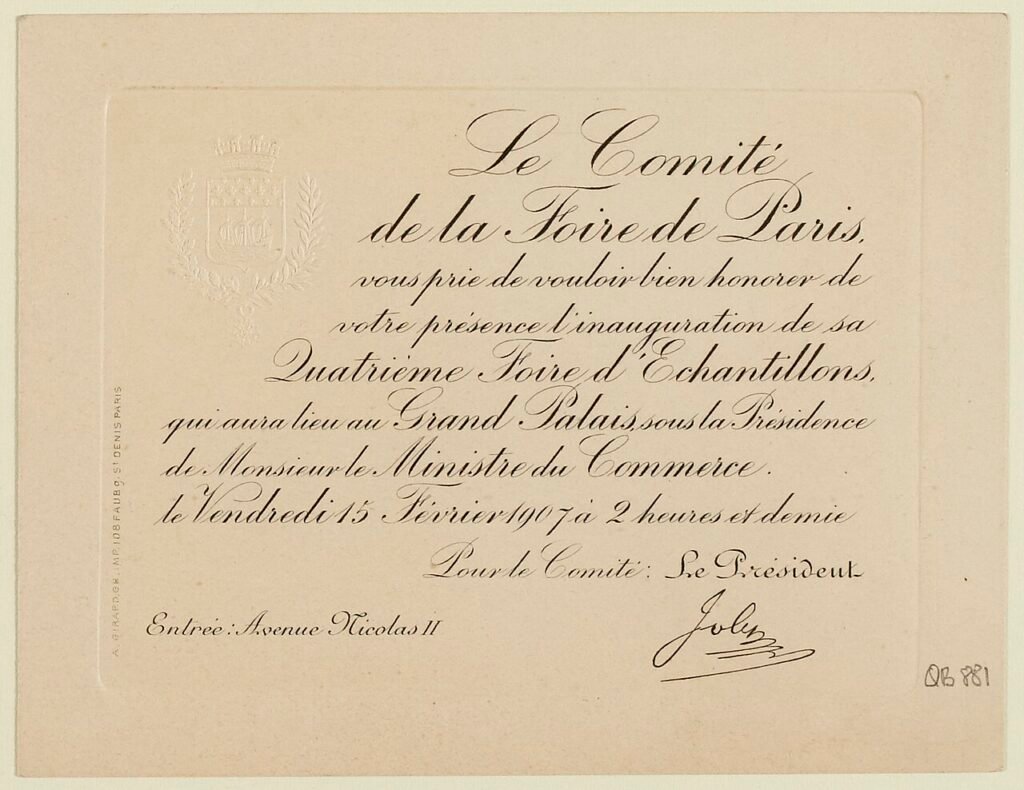 Le Comité
de la Foire de Paris,
vous prie de vouloir bien honorer de
votre présence l'inauguration de sa
Quatrième Foire d'Echantillons,
qui aura lieu au Grand Palais, sous la Présidence
de Monsieur le Ministre du Commerce.
le Vendredi 15 Février 1907 à 2 heures et demie
Pour le Comité: Le Président
Entrée: Avenue Nicolas II
A. GIRARD, GR. IMP. 108 FAUBG. ST DENIS PARIS
QB 881